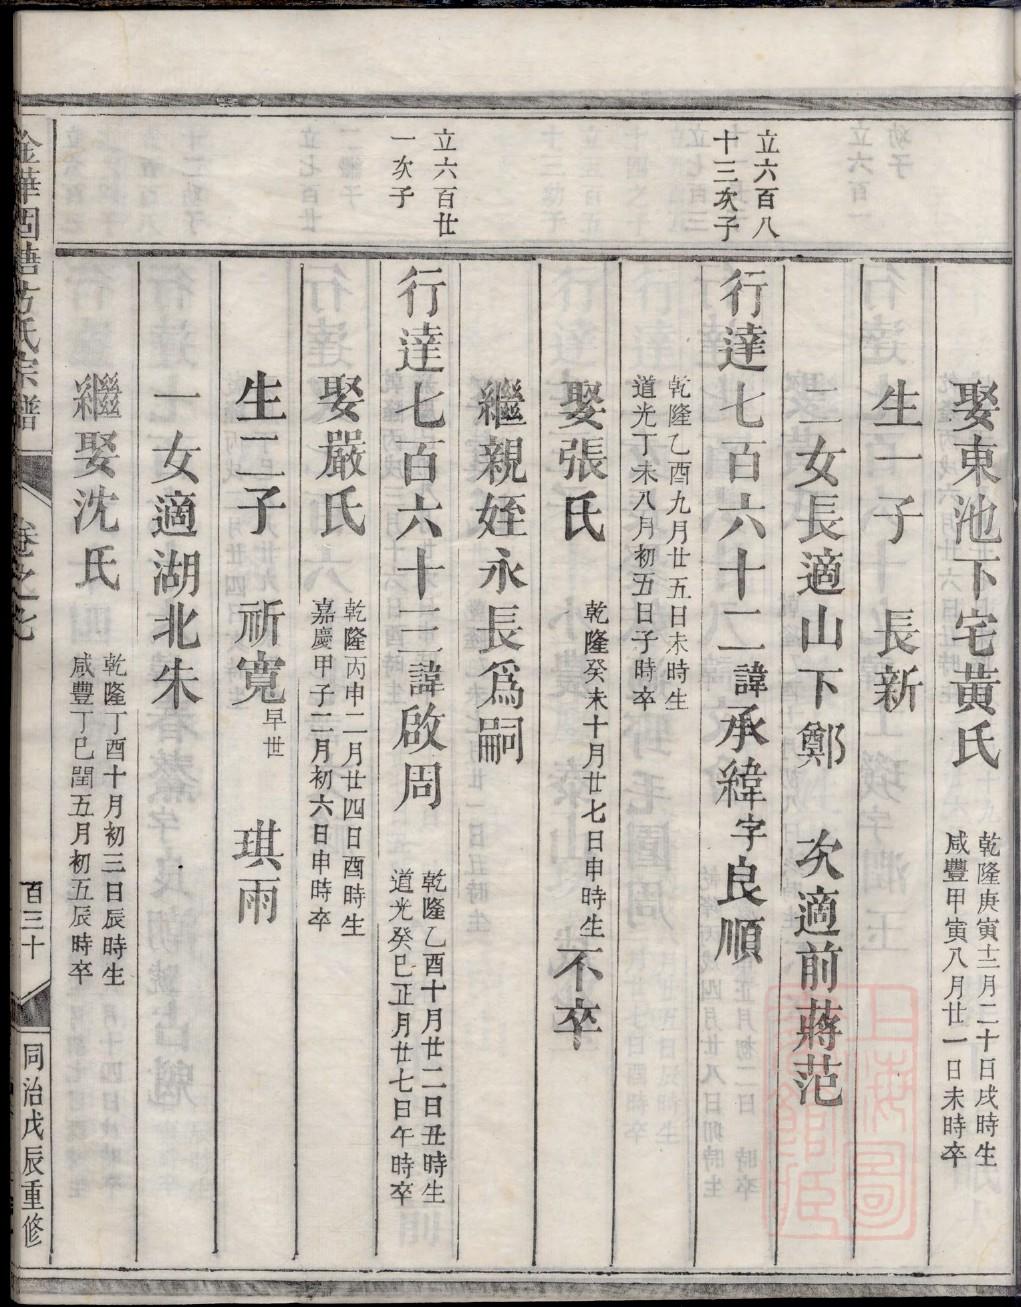 娶東池下宅黃氏
乾隆庚寅十二月二十日戌時生
咸豐甲寅八月廿一日未時卒
生一子　長新
二女長適山下鄭　次適前蔣范
立六百八
十三次子
行達七百六十二諱承緯字良順
乾隆乙酉九月廿五日未時生
道光丁未八月初五日子時卒
娶張氏
乾隆癸未十月廿七日申時生不卒
繼親姪永長爲嗣
立六百廿
一次子
行達七百六十三諱啟周
乾隆乙酉十月廿二日丑時生
道光癸巳正月廿七日午時卒
娶嚴氏
乾隆丙申二月廿四日酉時生
嘉慶甲子二月初六日申時卒
生二子　祈寬早世　琪雨
一女適湖北朱
繼娶沈氏
乾隆丁酉十月初三日辰時生
咸豐丁巳閏五月初五辰時卒
金華固塘方氏宗譜
卷之七
百三十
同治戊辰重修